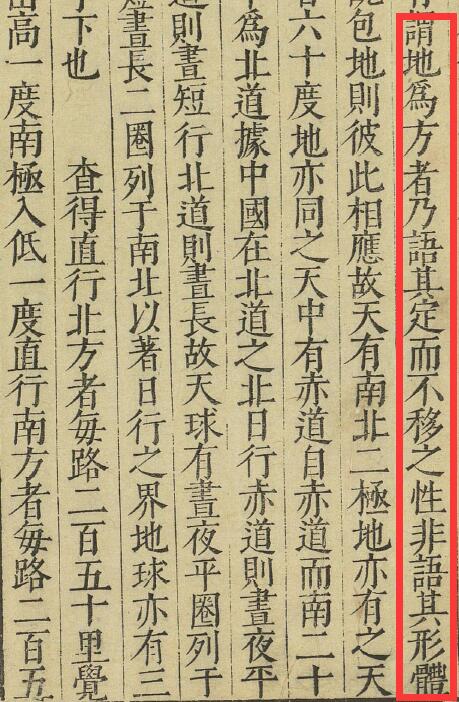 謂地爲方者乃語其定而不移之性非語其形體
包地則彼此相應故天有南北二極地亦有之天
六十度地亦同之天中有赤道自赤道而南二十
爲北道據中國在北道之北日行赤道則晝夜平
道則晝短行北道則晝長故天球有晝夜平圈列于
短晝長二圈列于南北以著日行之界地球亦有三
于下也　查得直行北方者毎路二百五十里覺
出高一度南極入低一度直行南方者毎路二百五